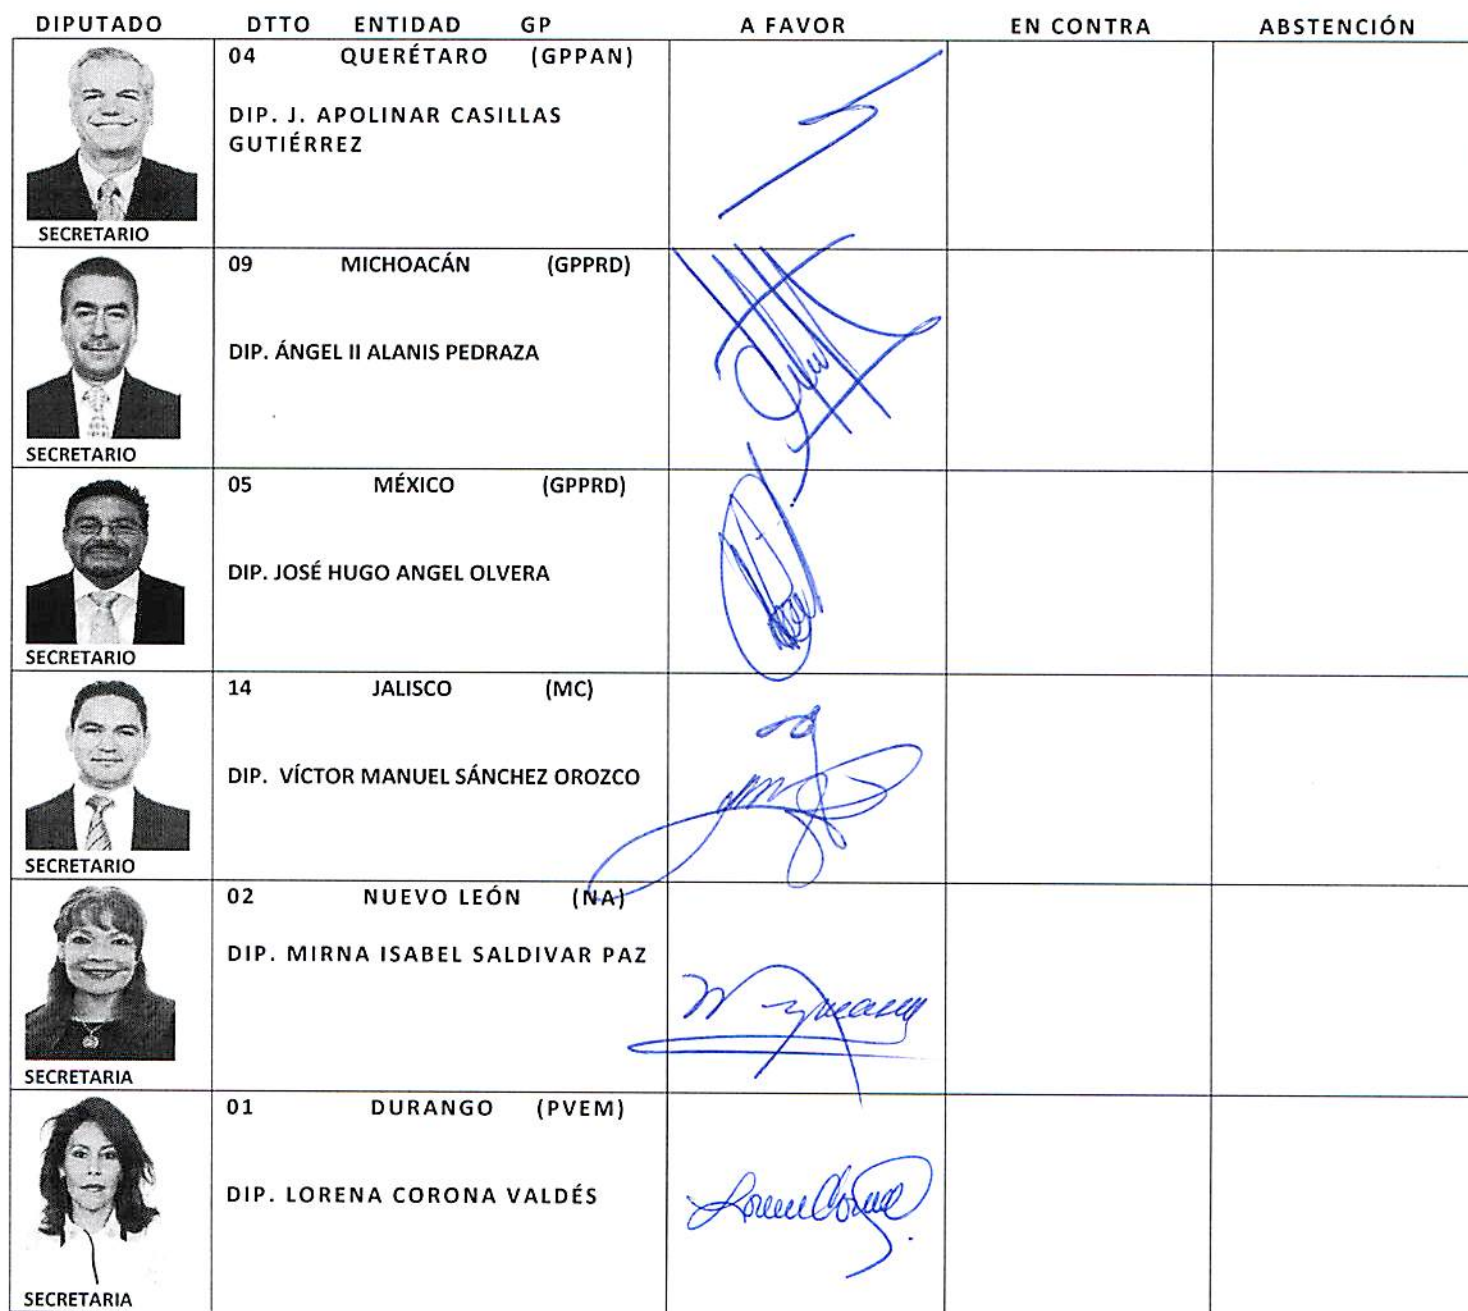 DIPUTADO DTTO ENTIDAD GP A FAVOR EN CONTRA ABSTENCIÓN
04 QUERÉTARO (GPPAN)
DIP. J. APOLINAR CASILLAS
GUTIÉRREZ
SECRETARIO
09 MICHOACÁN (GPPRD)
DIP. ÁNGEL II ALANIS PEDRAZA
SECRETARIO
05 MÉXICO (GPPRD)
DIP. JOSÉ HUGO ANGEL OLVERA
SECRETARIO
14 JALISCO (MC)
DIP. VÍCTOR MANUEL SÁNCHEZ OROZCO
SECRETARIO
02 NUEVO LEÓN (NA)
DIP. MIRNA ISABEL SALDIVAR PAZ
SECRETARIA
01 DURANGO (PVEM)
DIP. LORENA CORONA VALDÉS
SECRETARIA